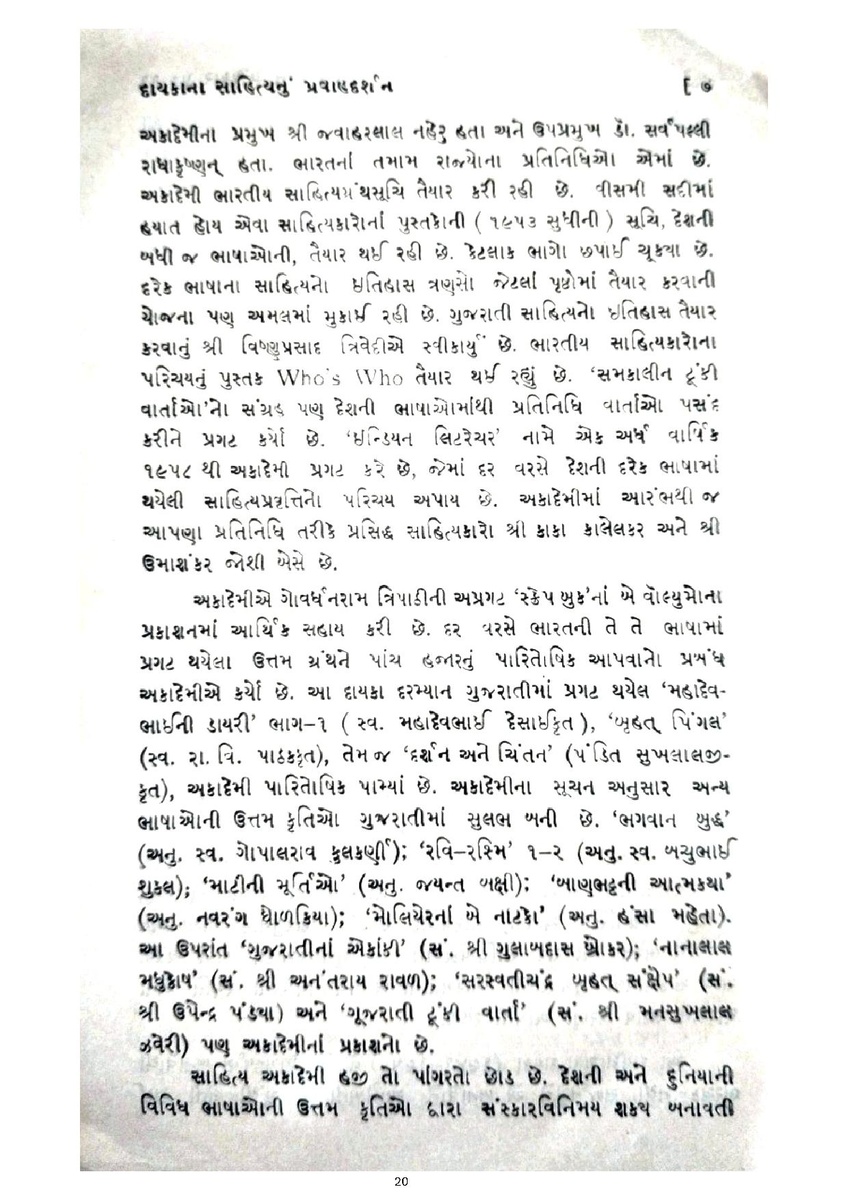 દાયકાના સાહિત્યનું પ્રવાહદર્શન [ ૭
અકાદેમીના પ્રમુખ શ્રી જવાહરલાલ નહેરુ હતા અને ઉપપ્રમુખ ડૉ. સર્વપલ્લી
રાધાકૃષ્ણન્ હતા. ભારતનાં તમામ રાજ્યોના પ્રતિનિધિઓ એમાં છે.
અકાદેમી ભારતીય સાહિત્યગ્રંથસૂચિ તૈયાર કરી રહી છે. વીસમી સદીમાં
હયાત હોય એવા સાહિત્યકારોનાં પુસ્તકોની ( ૧૯૫૩ સુધીની ) સૂચિ, દેશની
બધી જ ભાષાઓની, તૈયાર થઈ રહી છે. કેટલાક ભાગો છપાઈ ચૂક્યા છે.
દરેક ભાષાના સાહિત્યનો ઇતિહાસ ત્રણસો જેટલાં પૃષ્ઠોમાં તૈયાર કરવાની
યોજના પણ અમલમાં મુકાઈ રહી છે. ગુજરાતી સાહિત્યનો ઇતિહાસ તૈયાર
કરવાનું શ્રી વિષ્ણુપ્રસાદ ત્રિવેદીએ સ્વીકાર્યું છે. ભારતીય સાહિત્યકારોના
પરિચયનું પુસ્તક Who's Who તૈયાર થઈ રહ્યું છે. ‘સમકાલીન ટૂંકી
વાર્તાઓ’નો સંગ્રહ પણ દેશની ભાષાઓમાંથી પ્રતિનિધિ વાર્તાઓ પસંદ
કરીને પ્રગટ કર્યો છે. ‘ઇન્ડિયન લિટરેચર’ નામે એક અર્ધ વાર્ષિક
૧૯૫૮ થી અકાદેમી પ્રગટ કરે છે, જેમાં દર વરસે દેશની દરેક ભાષામાં
થયેલી સાહિત્યપ્રવૃત્તિનો પરિચય અપાય છે. અકાદેમીમાં આરંભથી જ
આપણા પ્રતિનિધિ તરીકે પ્રસિદ્ધ સાહિત્યકારો શ્રી કાકા કાલેલકર અને શ્રી
ઉમાશંકર જોશી બેસે છે.
અકાદેમીએ ગોવર્ધનરામ ત્રિપાઠીની અપ્રગટ ‘સ્ક્રેપ બુક’નાં બે વૉલ્યુમોના
પ્રકાશનમાં આર્થિક સહાય કરી છે. દર વરસે ભારતની તે તે ભાષામાં
પ્રગટ થયેલા ઉત્તમ ગ્રંથને પાંચ હજારનું પારિતોષિક આપવાનો પ્રબંધ
અકાદેમીએ કર્યો છે. આ દાયકા દરમ્યાન ગુજરાતીમાં પ્રગટ થયેલ ‘મહાદેવ-
ભાઈની ડાયરી’ ભાગ–૧ ( સ્વ. મહાદેવભાઈ દેસાઈકૃત ), ‘બૃહત્ પિંગલ’
(સ્વ. રા. વિ. પાઠકકૃત), તેમ જ ‘દર્શન અને ચિંતન’ (પંડિત સુખલાલજી-
કૃત), અકાદેમી પારિતોષિક પામ્યાં છે. અકાદેમીના સૂચન અનુસાર અન્ય
ભાષાઓની ઉત્તમ કૃતિઓ ગુજરાતીમાં સુલભ બની છે. ‘ભગવાન બુદ્ધ’
(અનુ. સ્વ. ગોપાલરાવ કુલકર્ણી); ‘રવિ–રશ્મિ’ ૧–૨ (અનુ. સ્વ. બચુભાઈ
શુકલ); ‘માટીની મૂર્તિઓ’ (અનુ. જયન્ત બક્ષી); ‘બાણભટ્ટની આત્મકથા’
(અનુ. નવરંગ ધોળકિયા); ‘મોલિયેરનાં બે નાટકો’ (અનુ. હંસા મહેતા).
આ ઉપરાંત ‘ગુજરાતીનાં એકાંકી’ (સં. શ્રી ગુલાબદાસ બ્રોકર); ‘નાનાલાલ
મધુકોષ’ (સં. શ્રી અનંતરાય રાવળ); ‘સરસ્વતીચંદ્ર બૃહત્ સંક્ષેપ’ (સં.
શ્રી ઉપેન્દ્ર પંડ્યા) અને ‘ગૂજરાતી ટૂંકી વાર્તા’ (સં. શ્રી મનસુખલાલ
ઝવેરી) પણ અકાદેમીનાં પ્રકાશનો છે.
સાહિત્ય અકાદેમી હજી તો પાંગરતો છોડ છે. દેશની અને દુનિયાની
વિવિધ ભાષાઓની ઉત્તમ કૃતિઓ દ્વારા સંસ્કારવિનિમય શક્ય બનાવતી
20